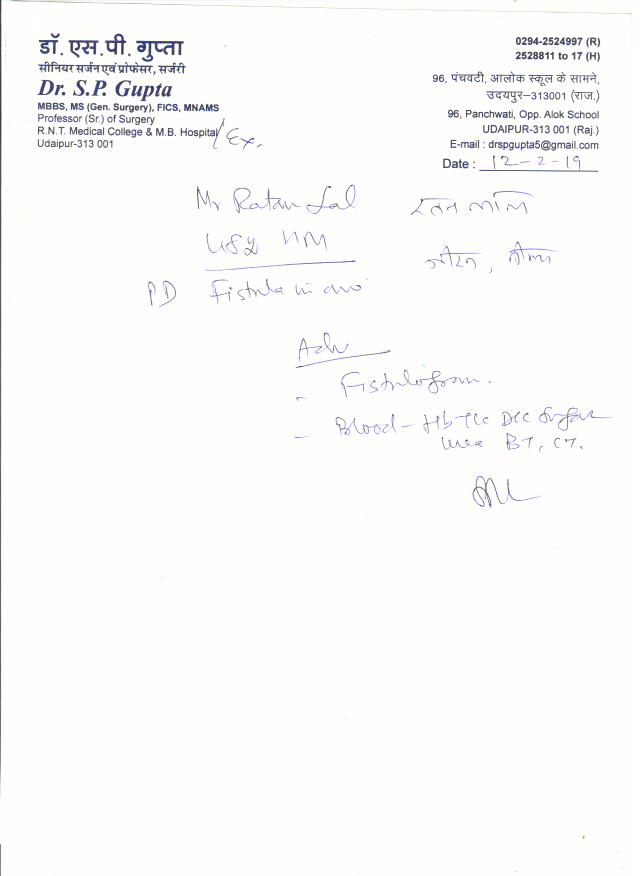 डॉ. एस.पी. गुप्ता
सीनियर सर्जन एवं प्रोफेसर, सर्जरी
Dr. S.P. Gupta
MBBS, MS (Gen. Surgery), FICS, MNAMS
Professor (Sr.) of Surgery
R.N.T. Medical College & M.B. Hospital
Udaipur-313 001
/Ex.
0294-2524997 (R)
2528811 to 17 (H)
96, पंचवटी, आलोक स्कूल के सामने,
उदयपुर–313001 (राज.)
96, Panchwati, Opp. Alok School
UDAIPUR-313 001 (Raj.)
E-mail : drspgupta5@gmail.com
Date : 12-2-19
Mr Ratan Lal रतन लाल
PD Fistula in ano
Adv
- Fistulogram.
- Blood - Hb TLC DLC Sugar
Urea BT, CT.